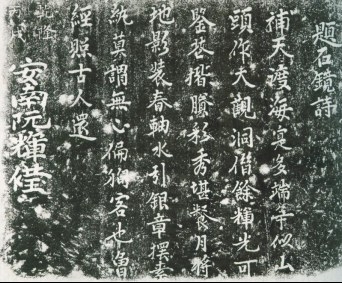 題石鏡詩
補天海多端爭似山
頭作大觀洞借餘輝光可
鑒苔揩秀堪餐月將
地影裝春軸水引銀章擺素
紈莫謂無心偏狎客也曾
經照古人還
安南阮輝𠐓